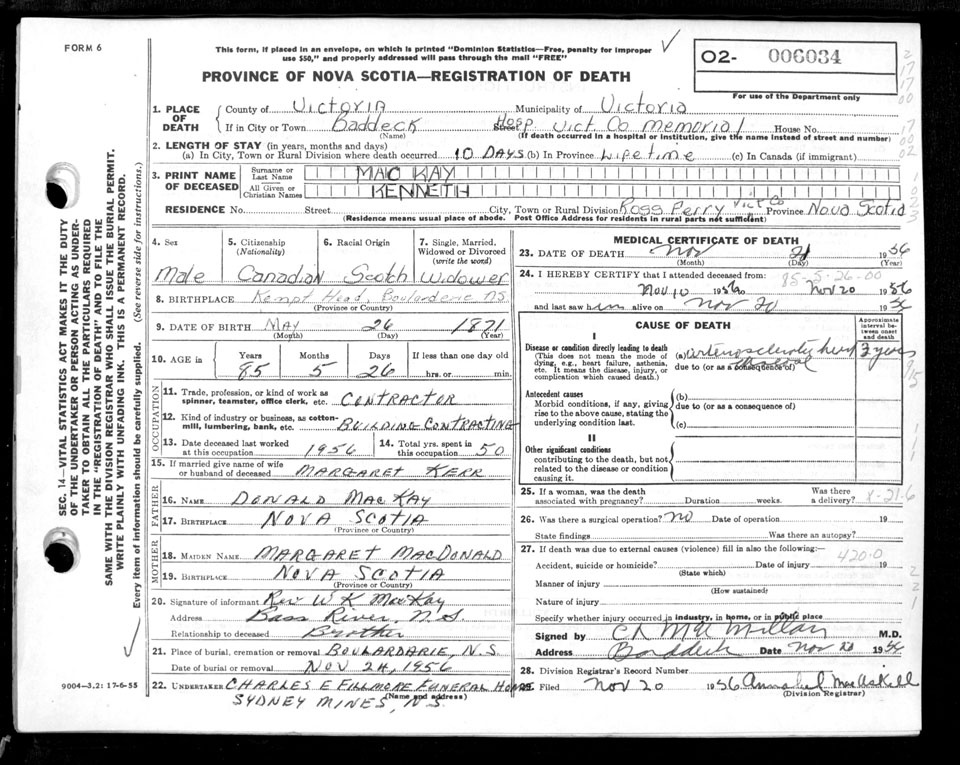 FORM 6
This form, if placed in an envelope, on which is printed "Dominion Statistics—Free, penalty for improper
use $50," and properly addressed will pass through the mail "FREE"
✓
O2- 006034
For use of the Department only
PROVINCE OF NOVA SCOTIA—REGISTRATION OF DEATH
SEC. 14—VITAL STATISTICS ACT MAKES IT THE DUTY
OF THE UNDERTAKER OR PERSON ACTING AS UNDER-
TAKER TO OBTAIN ALL THE PARTICULARS REQUIRED
IN THE "REGISTRATION OF DEATH" AND TO FILE THE
SAME WITH THE DIVISION REGISTRAR WHO SHALL ISSUE THE BURIAL PERMIT.
WRITE PLAINLY WITH UNFADING INK. THIS IS A PERMANENT RECORD.
Every item of information should be carefully supplied. (See reverse side for instructions.)
1. PLACE OF DEATH County of Victoria Municipality of Victoria
If in City or Town Baddeck Street Hosp. Vict. Co. Memorial House No.
(Name) (If death occurred in a hospital or institution, give the name instead of street and number)
2. LENGTH OF STAY (in years, months and days)
(a) In City, Town or Rural Division where death occurred 10 DAYS (b) In Province Lifetime (c) In Canada (if immigrant)
3. PRINT NAME OF DECEASED Surname or Last Name MAC KAY
All Given or Christian Names KENNETH
RESIDENCE No. Street City, Town or Rural Division Ross Ferry Vict Co Province Nova Scotia
(Residence means usual place of abode. Post Office Address for residents in rural parts not sufficient)
4. Sex 5. Citizenship (Nationality) 6. Racial Origin 7. Single, Married, Widowed or Divorced (write the word)
Male Canadian Scotch Widower
8. BIRTHPLACE Kempt Head, Boularderie NS
(Province or Country)
9. DATE OF BIRTH May 26 1871
(Month) (Day) (Year)
10. AGE in Years Months Days If less than one day old
85 5 26 hrs. or min.
OCCUPATION
11. Trade, profession, or kind of work as spinner, teamster, office clerk, etc. CONTRACTOR
12. Kind of industry or business, as cotton-mill, lumbering, bank, etc. BUILDING CONTRACTING
13. Date deceased last worked at this occupation 1956 14. Total yrs. spent in this occupation 50
15. If married give name of wife or husband of deceased MARGARET KERR
FATHER
16. NAME DONALD MACKAY
17. BIRTHPLACE NOVA SCOTIA
(Province or Country)
MOTHER
18. MAIDEN NAME MARGARET MACDONALD
19. BIRTHPLACE NOVA SCOTIA
(Province or Country)
20. Signature of informant Rev W K MacKay
Address Bass River, N.S.
Relationship to deceased Brother
21. Place of burial, cremation or removal BOULARDARIE, N.S.
Date of burial or removal NOV 24, 1956
22. UNDERTAKER CHARLES E FILLMORE FUNERAL HOME
(Name and address)
SYDNEY MINES, N.S.
9004—3.2: 17-6-55
MEDICAL CERTIFICATE OF DEATH
23. DATE OF DEATH Nov 21 1956
(Month) (Day) (Year)
24. I HEREBY CERTIFY that I attended deceased from:
85-5-26-00
Nov 10 1956 to Nov 20 1956
and last saw him alive on Nov 20 19 56
CAUSE OF DEATH
Approximate interval between onset and death
I
Disease or condition directly leading to death
(This does not mean the mode of dying, e.g., heart failure, asthenia, etc. It means the disease, injury, or complication which caused death.)
(a)
due to (or as a consequence of)
3 years
Antecedent causes
Morbid conditions, if any, giving rise to the above cause, stating the underlying condition last.
(b)
due to (or as a consequence of)
(c)
II
Other significant conditions
contributing to the death, but not related to the disease or condition causing it.
25. If a woman, was the death associated with pregnancy? Duration weeks. Was there a delivery?
26. Was there a surgical operation? No Date of operation 19
State findings Was there an autopsy?
27. If death was due to external causes (violence) fill in also the following:—
420.0
Accident, suicide or homicide? Date of injury 19
(State which)
Manner of injury
(How sustained)
Nature of injury
Specify whether injury occurred in industry, in home, or in public place
Signed by C L MacMillan M.D.
Address Baddeck Date Nov 20 1956
28. Division Registrar's Record Number
Filed Nov 20 1956 Annabel MacAskill
(Division Registrar)